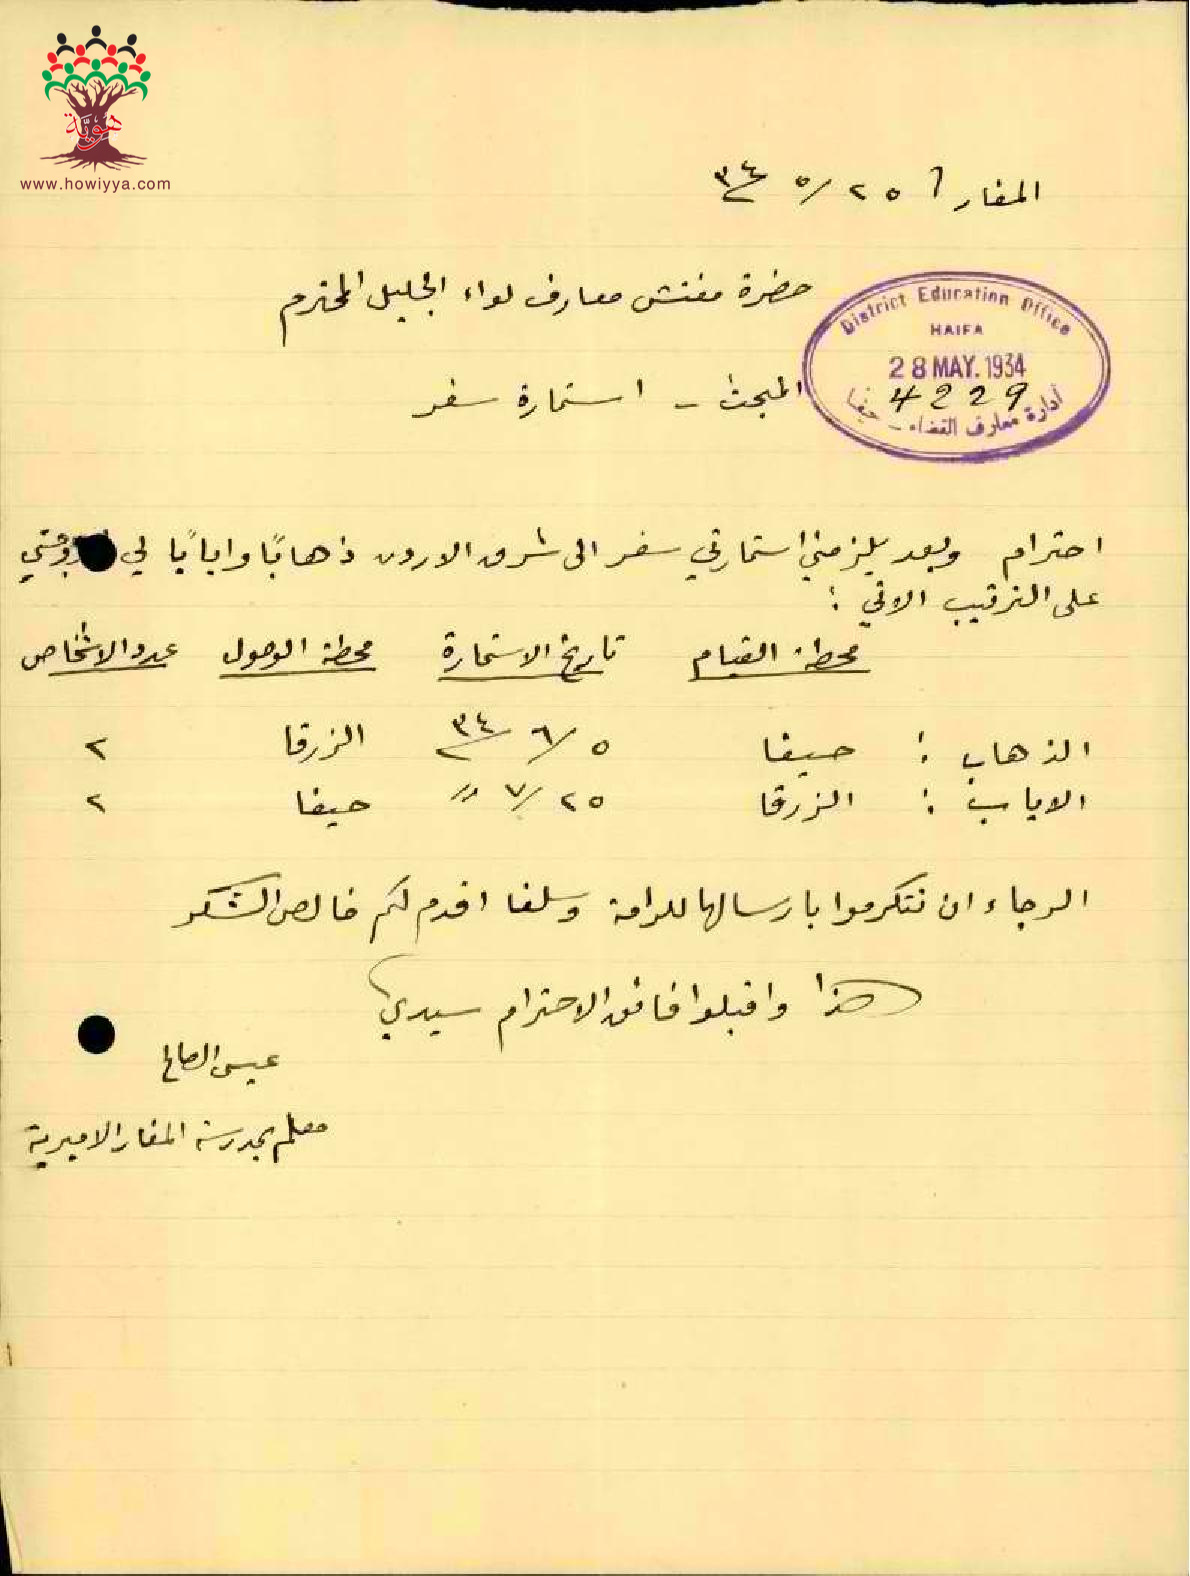 هوية
www.howiyya.com
المغار ٢٥/٥/٣٤
حضرة مفتش معارف لواء الجليل المحترم
District Education Office
HAIFA
28 MAY. 1934
4229
أدارة معارف القضاء - حيفا
المبحث - استمارة سفر
احترام وبعد يلزمني استمارتي سفر الى شرق الاردن ذهابًا وايابًا لي
على الترتيب الاتي :
محطة القيام تاريخ الاستمارة محطة الوصول عدد الاشخاص
الذهاب : حيفا ٥/٦/٣٤ الزرقا ٢
الاياب : الزرقا ٢٥/٧ " حيفا ٢
الرجاء ان تتكرموا بارسالها للرامة وسلفا اقدم لكم خالص الشكر
هذا واقبلوا فائق الاحترام سيدي
عيسى الصالح
معلم بمدرسة المغار الاميرية